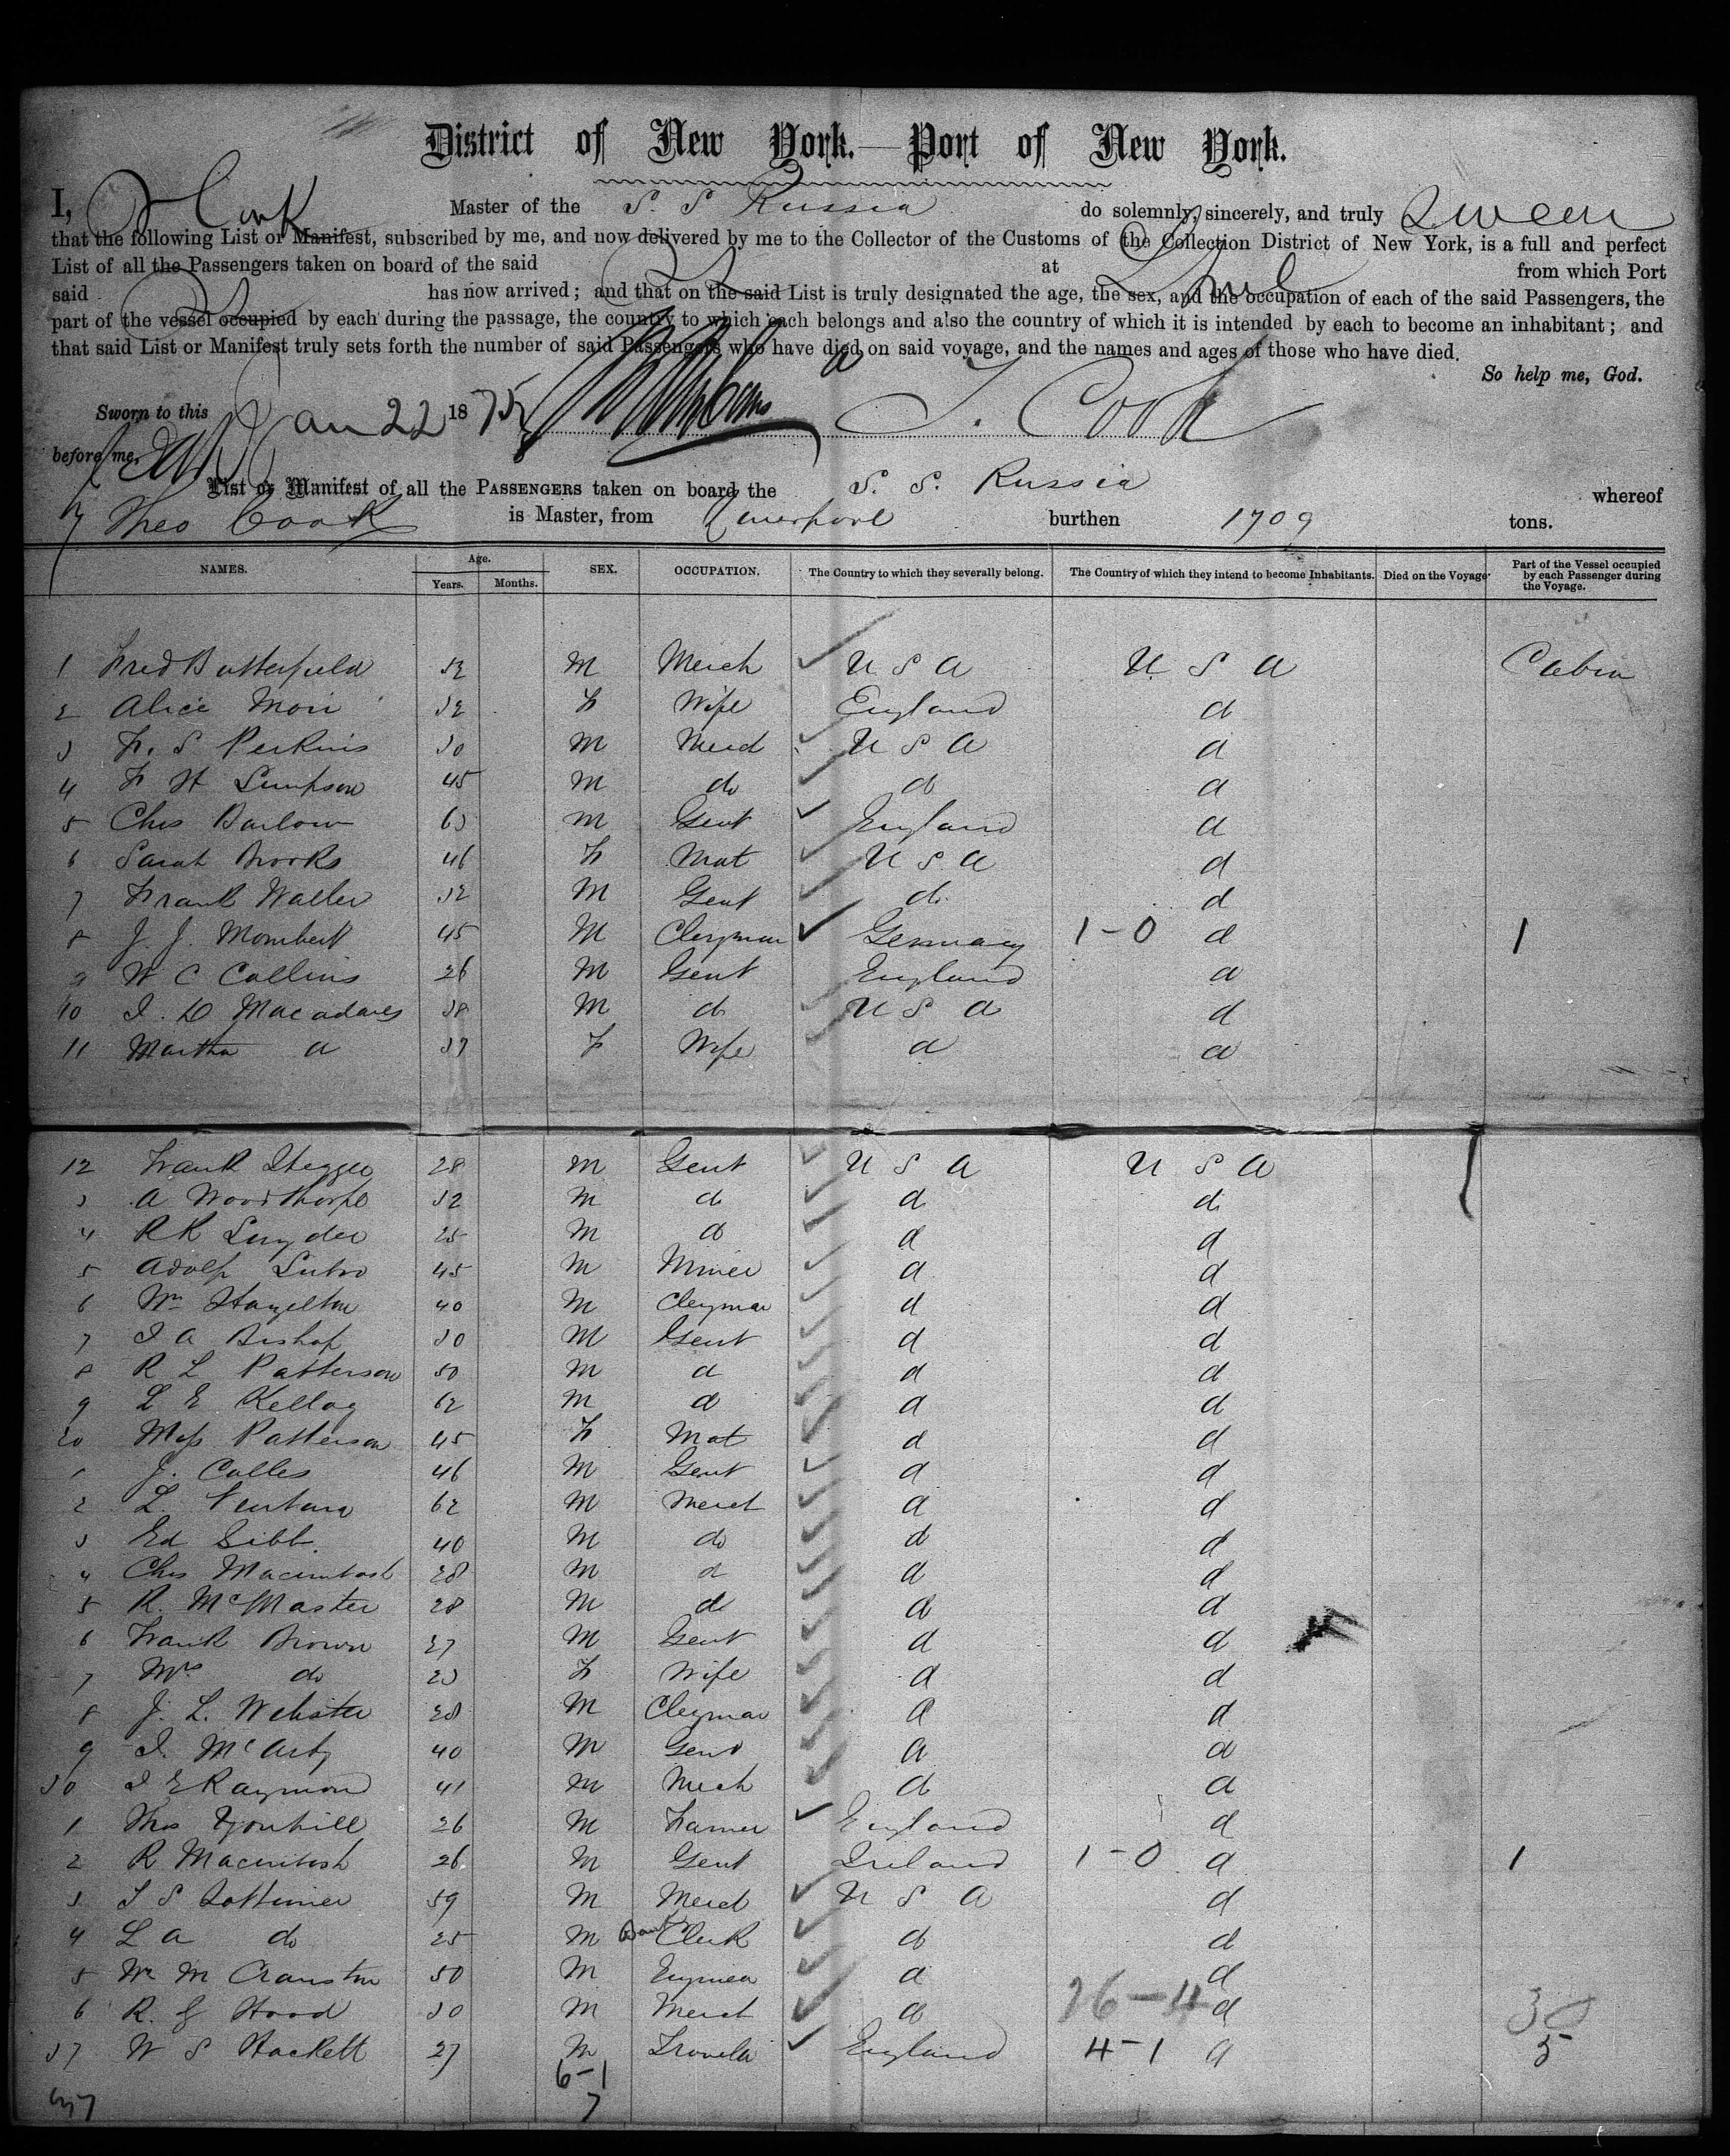 District of New York.—Port of New York.
I, T Cook Master of the S. S Russia do solemnly, sincerely, and truly swear
that the following List or Manifest, subscribed by me, and now delivered by me to the Collector of the Customs of the Collection District of New York, is a full and perfect
List of all the Passengers taken on board of the said at from which Port
said has now arrived; and that on the said List is truly designated the age, the sex, and the occupation of each of the said Passengers, the
part of the vessel occupied by each during the passage, the country to which each belongs and also the country of which it is intended by each to become an inhabitant; and
that said List or Manifest truly sets forth the number of said Passengers who have died on said voyage, and the names and ages of those who have died.
So help me, God.
Sworn to this Jan 22 1875 T. Cook
before me,
List or Manifest of all the PASSENGERS taken on board the S. S. Russia whereof
Theo Cook is Master, from Liverpool burthen 1709 tons.
NAMES. Age. Years. Months. SEX. OCCUPATION. The Country to which they severally belong. The Country of which they intend to become Inhabitants. Died on the Voyage. Part of the Vessel occupied by each Passenger during the Voyage.
1 Fred Butterfield 32 M Merch U S A U S A Cabin
2 Alice 32 F Wife England d
3 F. S Perkins 30 M Merch U S A d
4 F H Simpson 45 M do do d
5 Chs Barlow 63 M Gent England d
6 Sarah Brooks 46 F Mat U S A d
7 Frank Waller 32 M Gent do d
8 J. J. Mombert 45 M Clergyman Germany 1-0 d 1
9 W C Collins 26 M Gent England d
10 38 M do U S A d
11 Martha d 37 F Wife d d
12 Frank 28 M Gent U S A U S A
3 A Woodthorpe 32 M d d d
4 R R Snyder 25 M d d d
5 Adolf Sutro 45 M Miner d d
6 Wm Hazelton 40 M Clergyman d d
7 J A Bishop 30 M Gent d d
8 R L Patterson 50 M d d d
9 L E Kellog 62 M d d d
20 Mrs Patterson 45 F Mat d d
1 J. Colles 46 M Gent d d
2 L 62 M Merch d d
3 Ed Gibb. 40 M do d d
4 Chs Macintosh 28 M d d d
5 R. McMaster 28 M d d d
6 Frank Brown 27 M Gent d d
7 Mrs do 23 F Wife d d
8 J. L. Webster 28 M Clergyman d d
9 J. 40 M Gent d d
30 J E Raymond 41 M Merch d d
1 Thos 26 M Farmer England d
2 R Macintosh 26 M Gent Ireland 1-0 d 1
3 59 M Merch U S A d
4 L A do 25 M Bank Clerk do d
5 Wm M Cranston 50 M Engineer d d
6 R. G Hood 30 M Merch do 26-4 d 30
37 W S Hackett 27 M Traveler England 4-1 d 5
6-1
7